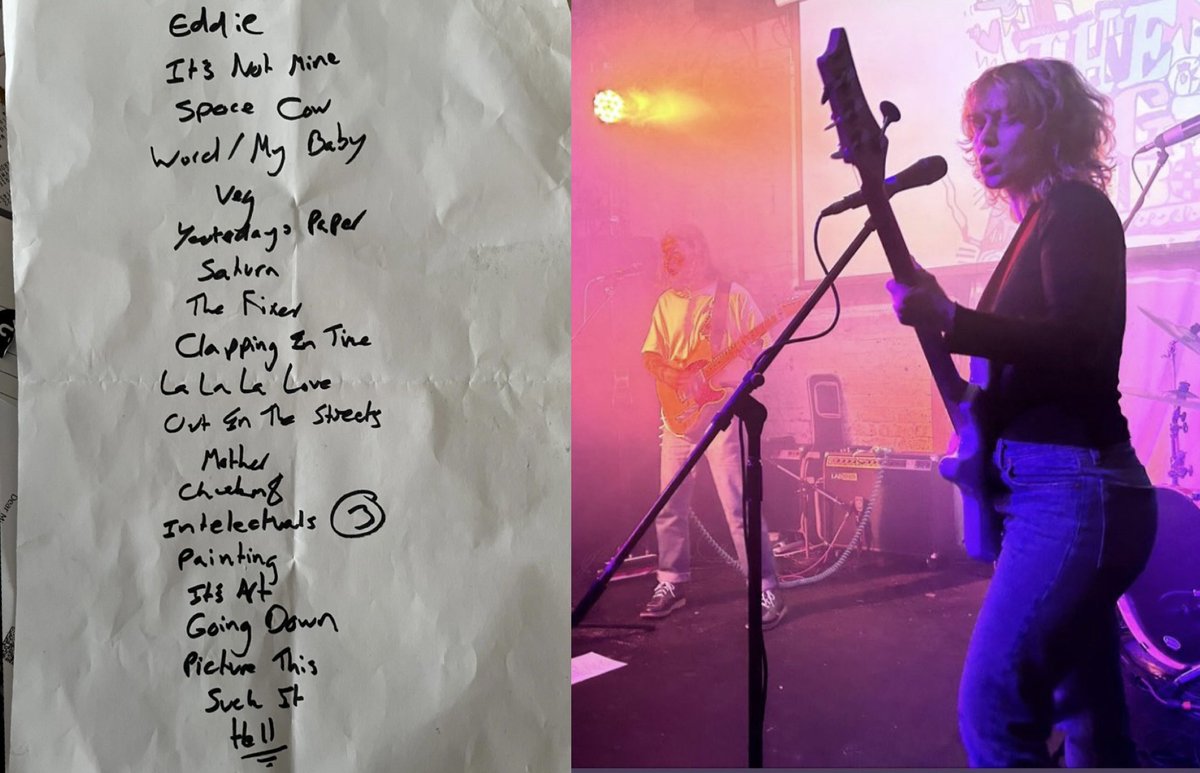 Eddie
It's Not Mine
Space Cow
Word / My Baby
Veg
Yesterdays Paper
Saturn
The Fixer
Clapping In Time
La La La Love
Out In The Streets
Mother
Intelectuals 3
Painting
It's Art
Going Down
Picture This
Suck It
Hell
THE
LAB